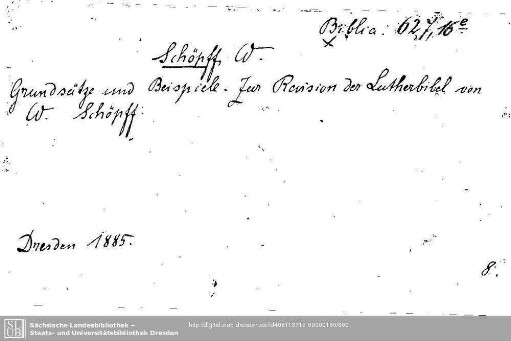 Biblia. 627, 16e
Schöpff, W.
Grundsätze und Beispiele. Zur Revision der Lutherbibel von
W. Schöpff.
Dresden 1885.
8.
SLUB
Sächsische Landesbibliothek –
Staats- und Universitätsbibliothek Dresden